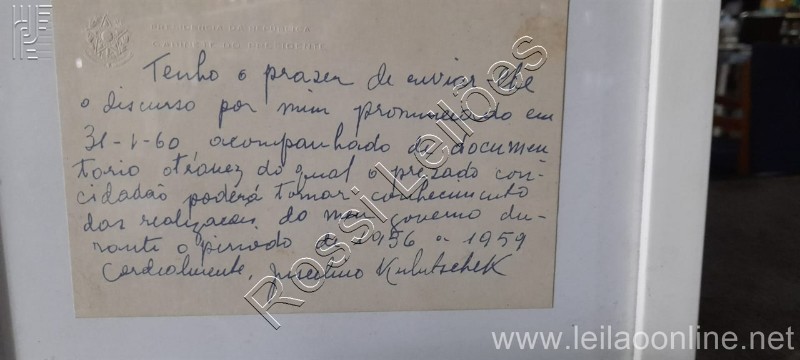 PRESIDENCIA DA REPUBLICA
GABINETE DO PRESIDENTE
Tenho o prazer de enviar-lhe
o discurso por mim pronunciado em
31-1-60, acompanhado de documen
tario atravez do qual o prezado con-
cidadão poderá tomar conhecimento
das realizações do meu governo du-
rante o periodo de 1956 a 1959
Cordialmente, Juscelino Kubitschek
Rossi Leilões
www.leilaoonline.net